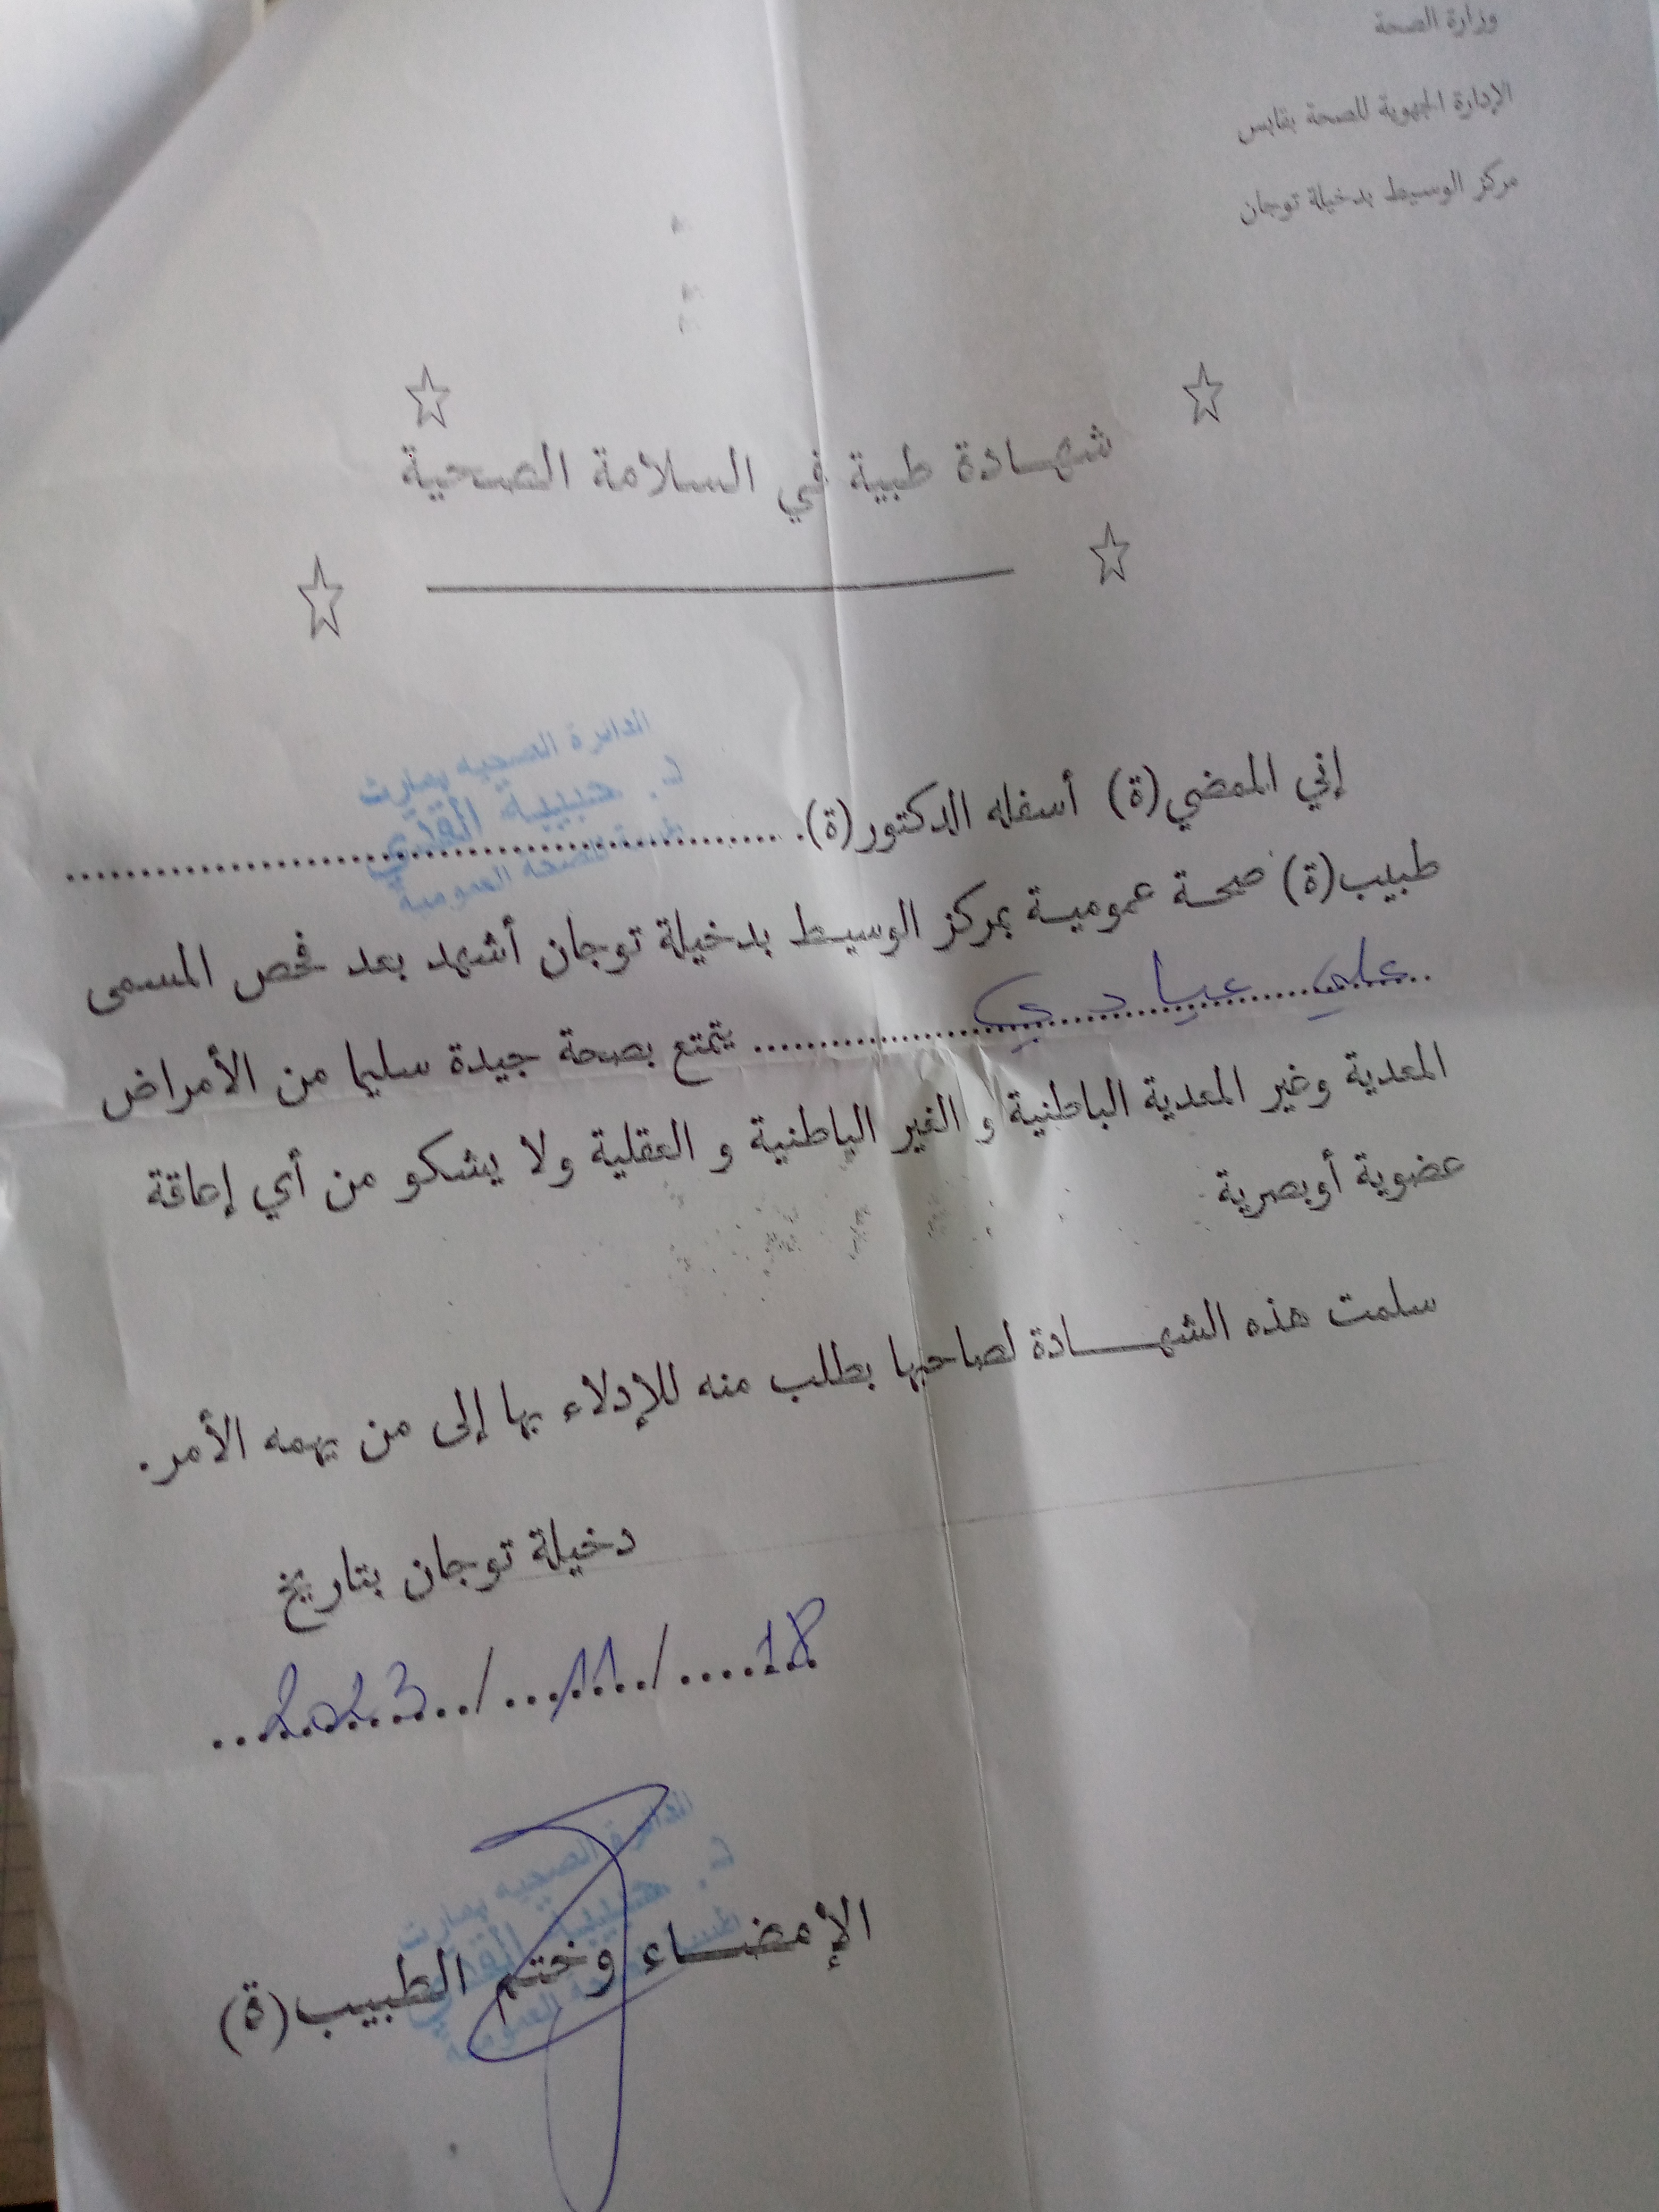 وزارة الصحة
الإدارة الجهوية للصحة بقابس
مركز الوسيط بدخيلة توجان
شهادة طبية في السلامة الصحية
الدائرة الصحية بمارث
د. حبيبة القلدي
للصحة العمومية
إني الممضي(ة) أسفله الدكتور(ة)
طبيب(ة) صحة عمومية بمركز الوسيط بدخيلة توجان أشهد بعد فحص المسمى
علي عيادي يتمتع بصحة جيدة سليما من الأمراض
المعدية وغير المعدية الباطنية و الغير الباطنية و العقلية ولا يشكو من أي إعاقة
عضوية أوبصرية
سلمت هذه الشهادة لصاحبها بطلب منه للإدلاء بها إلى من يهمه الأمر.
دخيلة توجان بتاريخ
18/11/2023
الدائرة الصحية بمارث
د. حبيبة
الإمضاء وختم الطبيب(ة)
العمومية